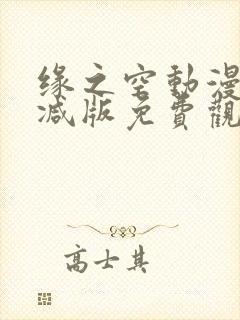 缘之空動漫
减版免費觀
高士其